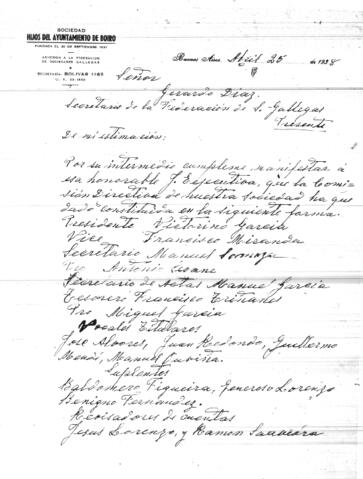 SOCIEDAD
HIJOS DEL AYUNTAMIENTO DE BOIRO
ADHERIDA A LA FEDERACION
DE SOCIEDADES GALLEGAS
SECRETARIA: BOLIVAR 1165
Buenos Aires, Abril 25 de 1938
Señor
Gerardo Díaz.
Secretario de la Federación de S. Gallegas
Presente
De mi estimación:
Por su intermedio cumpleme, manifestar á
esa honorable J. Executiva, que la Comi-
sión Directiva de nuestra sociedad ha que
dado constituida en la siguiente forma.
Presidente Victorino García
Vice Francisco Miranda
Secretario Manuel Somoza
Pro Antonio Seoane
Secretario de Actas Manuel García
Tesorero Francisco Triñanes
Pro Miguel García
Vocales Titulares
Jose Alvores, Juan Redondo, Guillermo
Manuel
Suplentes
Baldomero Figueira, Generoso Lorenzo
Benigno Fernandez.
Revisadores de cuentas
Jesus Lorenzo, y Ramon Saavedra